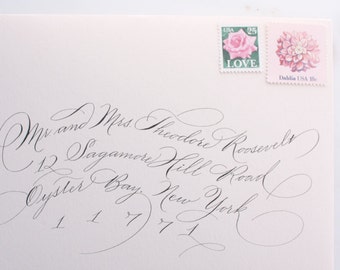 USA 25
LOVE
Dahlia USA 18c
Mr. and Mrs. Theodore Roosevelt
12 Sagamore Hill Road
Oyster Bay, New York
11771